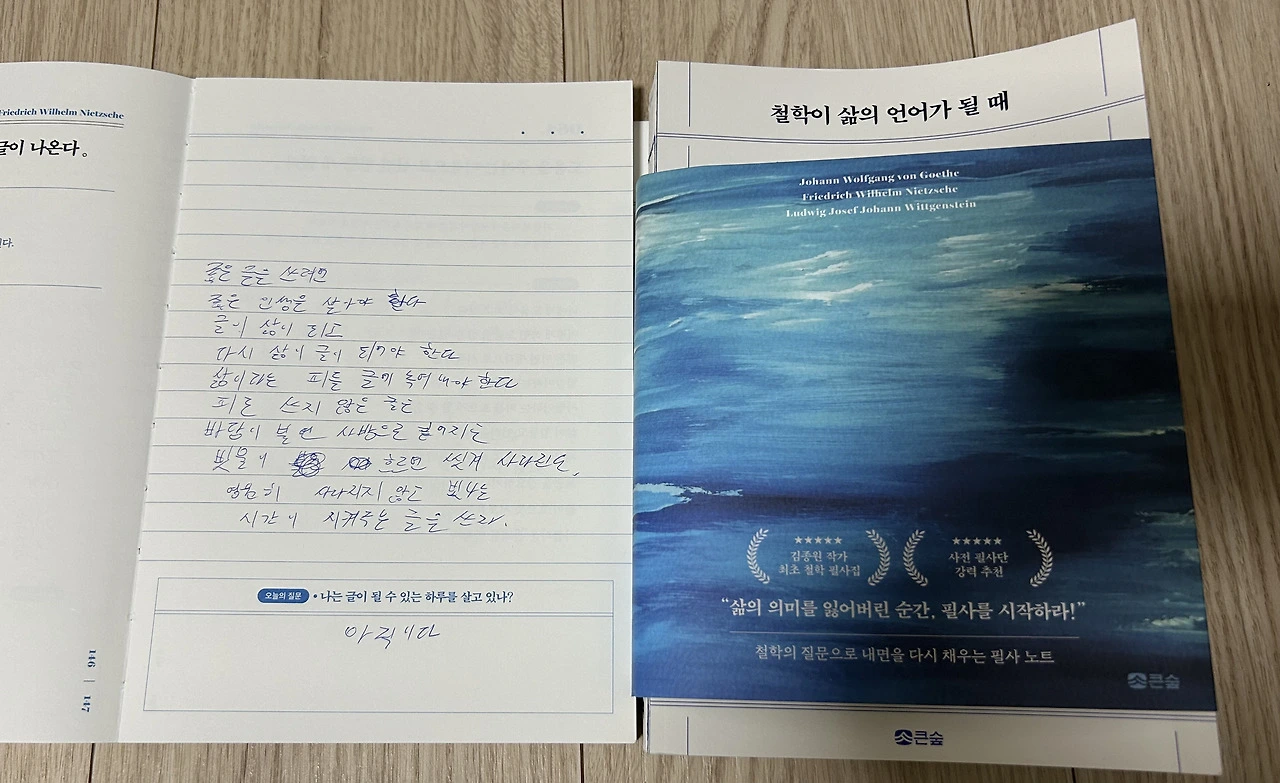 Friedrich Wilhelm Nietzsche
글이 나온다.
좋은 글을 쓰려면
좋은 인생을 살아야 한다
글이 삶이 되고
다시 삶이 글이 되어야 한다
삶이라는 피를 글에 녹여내야 한다
피로 쓰지 않은 글은
바람이 불면 사방으로 흩어지는
빗물이 흐르면 씻겨 사라진다,
영원히 사라지지 않고 빛나는
시간이 지켜주는 글을 쓰라.
오늘의 질문 • 나는 글이 될 수 있는 하루를 살고 있나?
아직이다
146 | 147
철학이 삶의 언어가 될 때
Johann Wolfgang von Goethe
Friedrich Wilhelm Nietzsche
Ludwig Josef Johann Wittgenstein
★★★★★
김종원 작가
최초 철학 필사집
★★★★★
사전 필사단
강력 추천
“삶의 의미를 잃어버린 순간, 필사를 시작하라!”
철학의 질문으로 내면을 다시 채우는 필사 노트
큰숲
큰숲